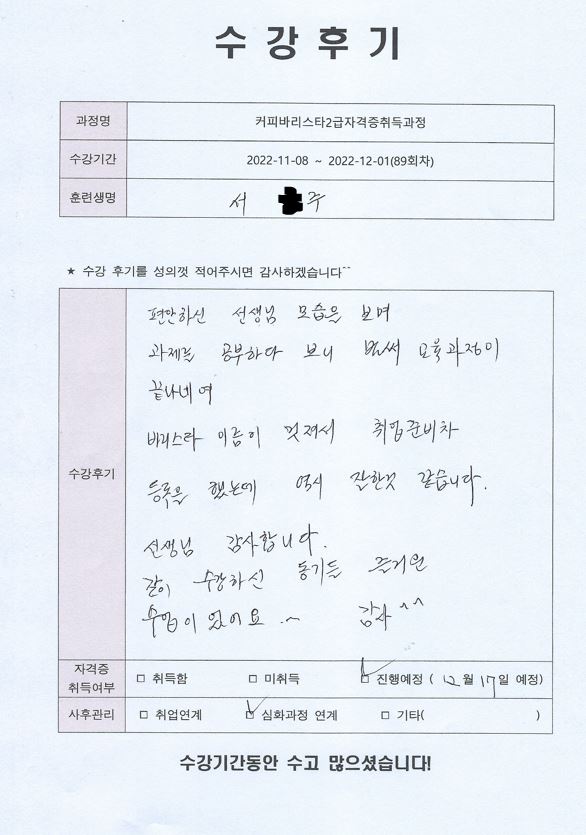 수강후기
과정명 커피바리스타2급자격증취득과정
수강기간 2022-11-08 ~ 2022-12-01(89회차)
훈련생명 서 주
★ 수강 후기를 성의껏 적어주시면 감사하겠습니다^^
수강후기
편안하신 선생님 모습을 보며
과제를 공부하다 보니 벌써 교육과정이
끝나네여
바리스타 이름이 멋져서 취업준비차
등록을 했는데 역시 잘한것 같습니다.
선생님 감사합니다.
같이 수강하신 동기들 즐거운
수업이 있어요 ~ 감사 ^^
자격증 취득여부 □ 취득함 □ 미취득 ☑ 진행예정 ( 12월 17일 예정)
사후관리 □ 취업연계 ☑ 심화과정 연계 □ 기타( )
수강기간동안 수고 많으셨습니다!